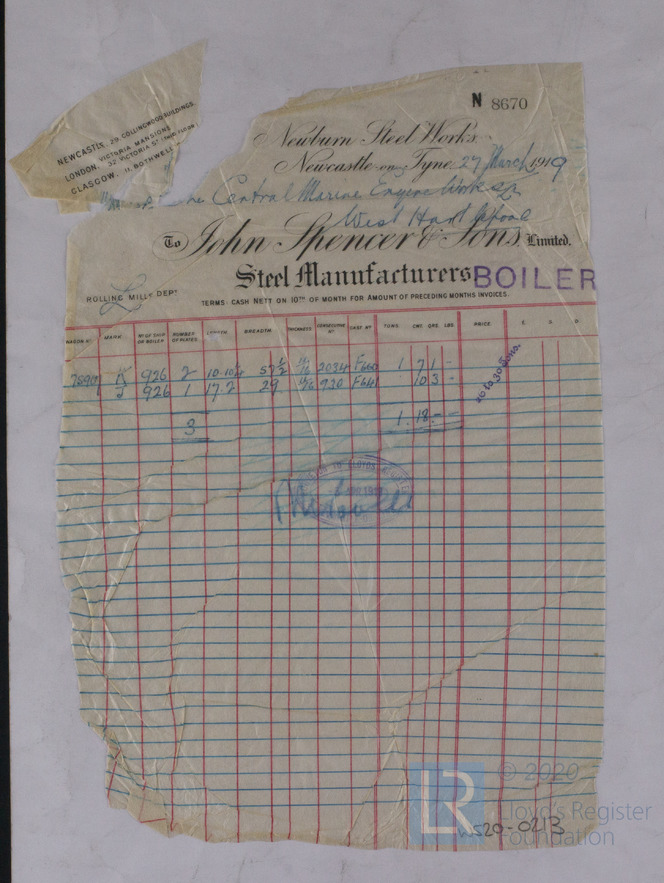 NEWCASTLE, 29 COLLINGWOOD BUILDINGS.
LONDON, VICTORIA MANSIONS
32 VICTORIA ST
GLASGOW, 11 BOTHWELL
N 8670
Newburn Steel Works
Newcastle-on-Tyne, 27 March 1919
The Central Marine Engine Works
West Hartlepool
To John Spencer & Sons Limited.
Steel Manufacturers BOILER
ROLLING MILLS DEPT
TERMS: CASH NETT ON 10TH OF MONTH FOR AMOUNT OF PRECEDING MONTHS INVOICES.
WAGON No MARK No OF SHIP OR BOILER NUMBER OF PLATES LENGTH. BREADTH. THICKNESS CONSECUTIVE No CAST No TONS. CWT. QRS. LBS. PRICE. £. S. D.
926 2 57½ 2034 F660 1 7 1 -
926 1 17.2 29 F641 10 3 -
3 1. 18. -
26 to 30 tons.
LLOYDS
LR
© 2020
Lloyd's Register
Foundation
WS20-0213